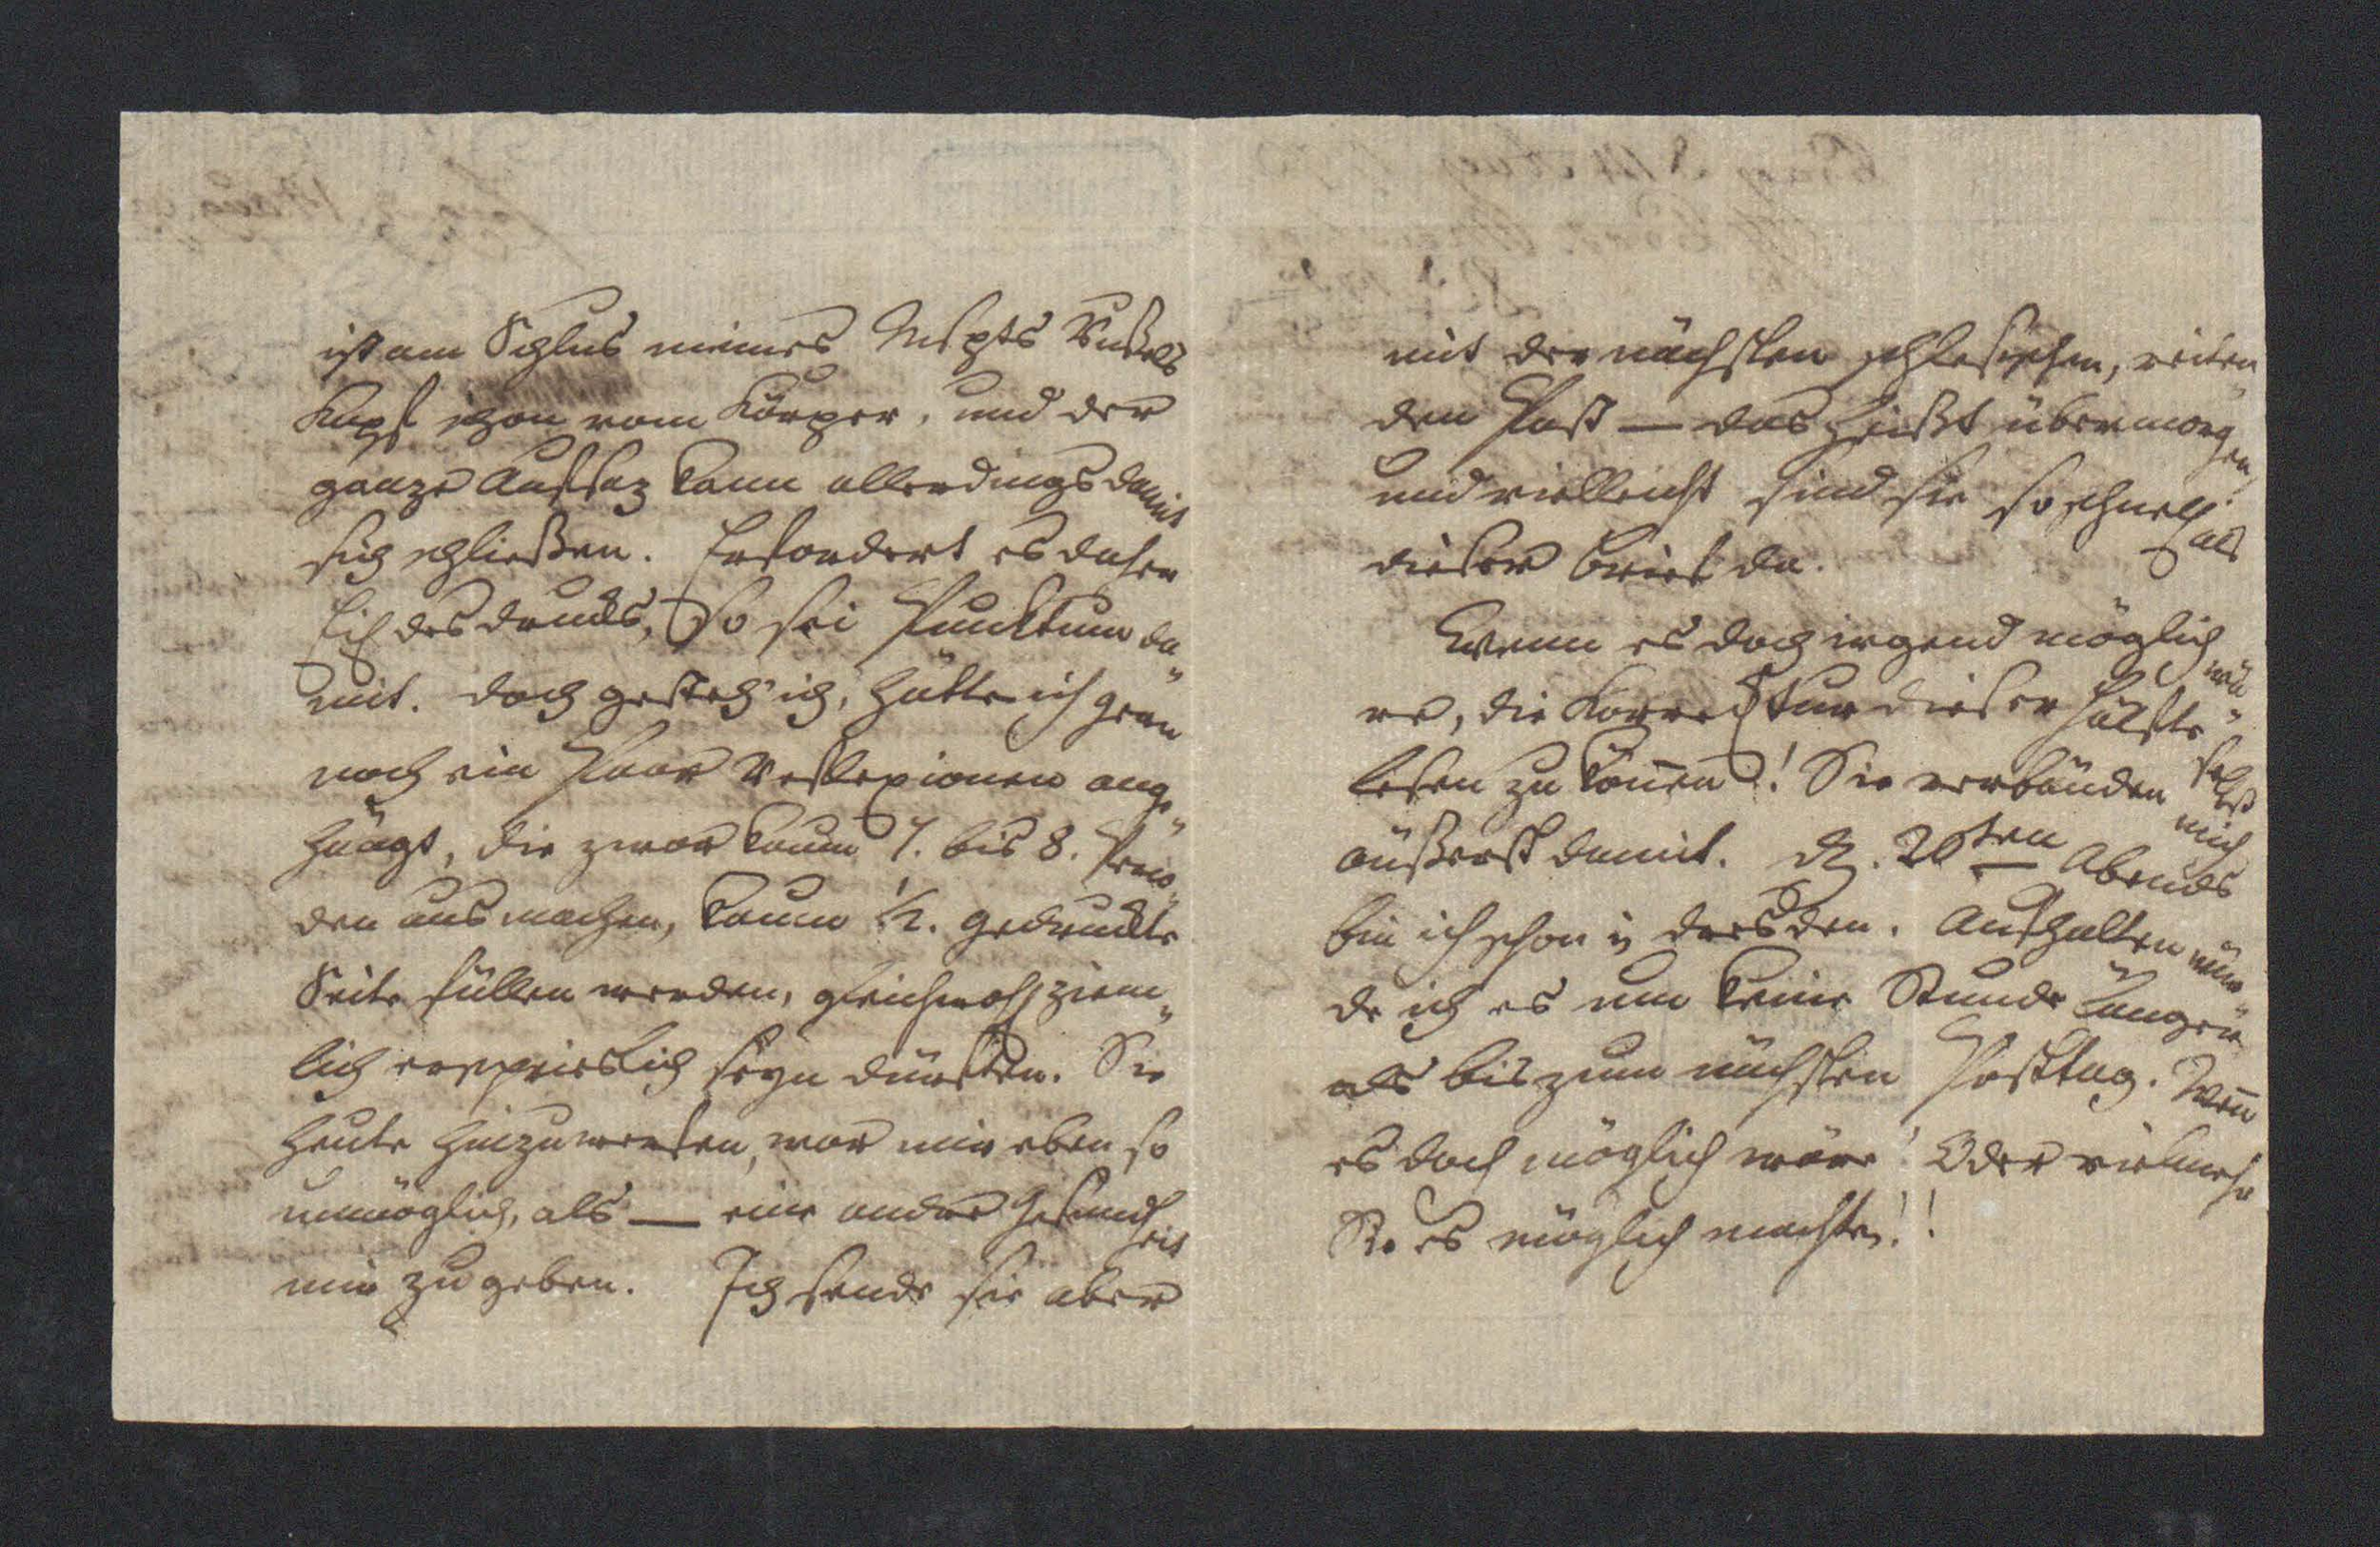 ist am Schlus meines Mspts Rußels
Kopf schon vom Körper, und der
ganze Aufsaz kann allerdings damit
sich schließen. Erfordert es daher
Eil des Drucks, so sei Punktum da„
mit. Doch gesteh' ich, hätte ich gern
noch ein Paar Reflexionen ange„
hängt, die zwar kaum 7. bis 8. Perio„
den ausmachen, kaum 1/2. gedruckte
Seite füllen werden, gleichwohl ziem„
lich erspieslich seyn dürften. Sie
heute hinzuwerfen, war mir eben so
unmöglich, als — eine andre Gesundheit
mir zu geben. Ich sende sie aber
mit der nächsten schlesischen, reiten„
den Post — das heißt übermorgen,
und vielleicht sind sie so schnell als
dieser Brief da.
Wenn es doch irgend möglich wä„
re, die Korrecktur dieser Hälfte selbst
lesen zu können! Sie verbänden mich
äußerst damit. D. 20ten Abends
bin ich schon in Dresden. Aufhalten wür„
de ich es um keine Stunde länger
als bis zum nächsten Posttag. Wenn
es doch möglich wäre! Oder vielmehr
Sie es möglich machten!!